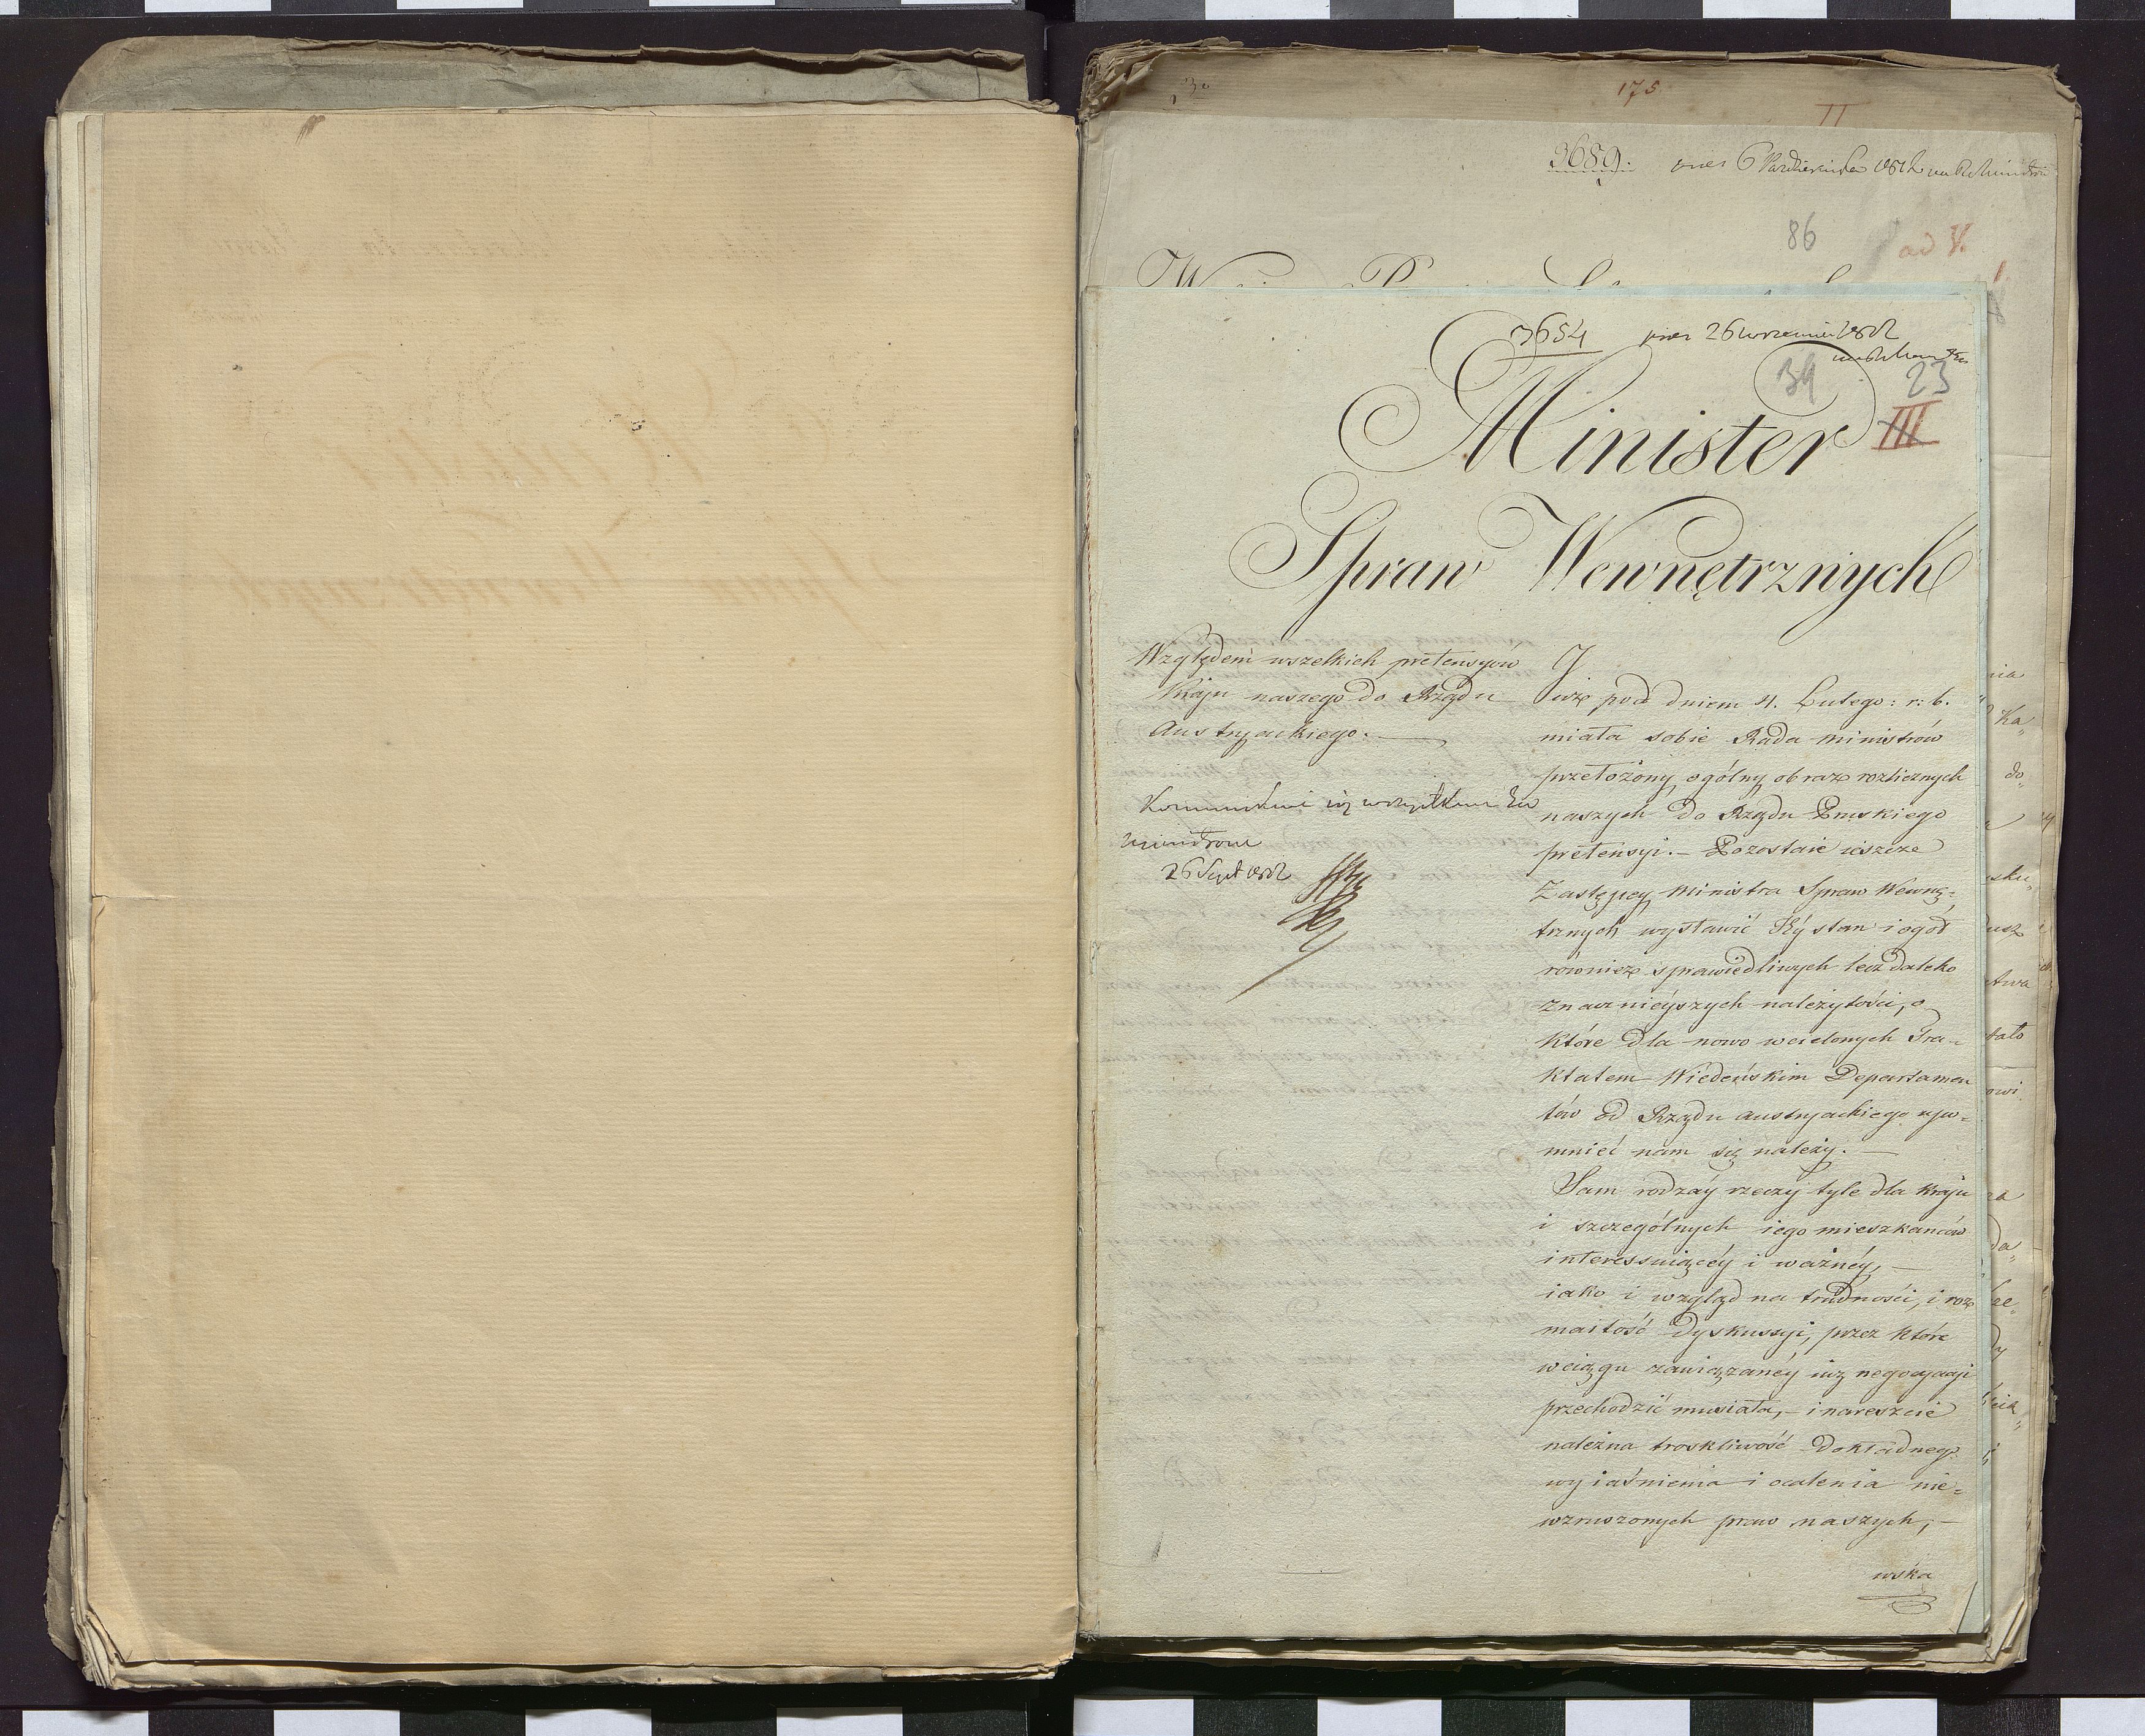 175
II
3689. pres 6 Października 1812
86 ad V.
3654 pres 26 wrzesnia 1812
34 23
III
Minister
Spraw Wewnętrznych
Względem wszelkich pretensyów
Kraju naszego do Rządu
Austryackiego.
26 Sept 1812
Już pod dniem 4. Lutego: r: b.
miała sobie Rada Ministrów
przełożony ogólny obraz rozlicznych
naszych do Rządu Pruskiego
pretensyi. - Pozostaie ieszcze
Zastępcy Ministra Spraw Wewnę-
trznych wystawić Jéy stan i ogół
również sprawiedliwych lecz daleko
znacznieyszych należytości, o
które dla nowo wcielonych Tra-
ktatem Wiedeńskim Departamen
tów od Rządu austryackiego upo-
mnieć nam się należy. -
Sam rodzay rzeczy tyle dla kraju
i szczególnych iego mieszkańców
interessuiącéy i ważnéy, -
iako i wzgląd na trudności, i roz
maitość dyskussyi, przez które
w ciągu zawiązanéy iuż negocyacji
przechodzić musiała, - i nareszcie
należna troskliwość dokładnego
wyiaśnienia i ocalenia nie-
wzruszonych praw naszych, -
wska